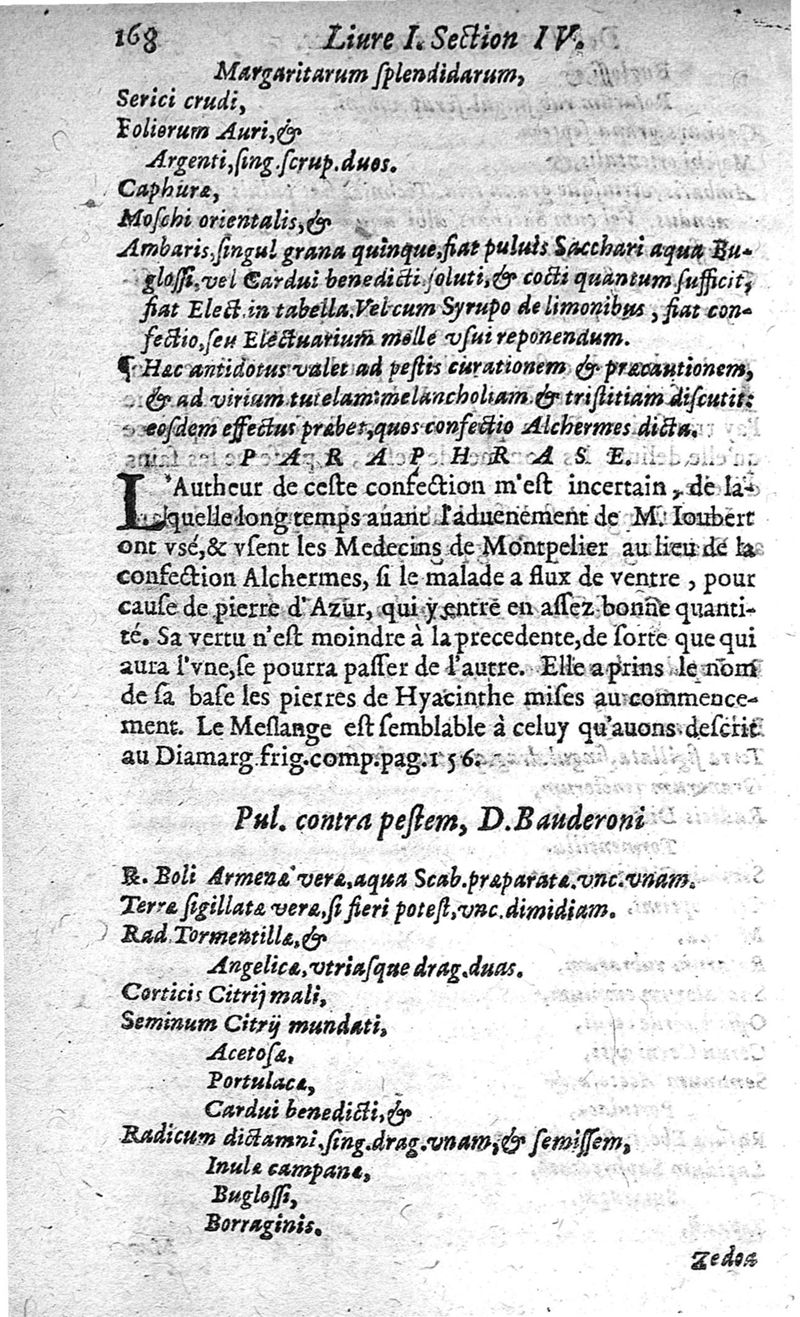 168 Liure I. Section IV.
Margaritarum ſplendidarum,
Serici crudi,
Foliorum Auri, &
Argenti, ſing. ſcrup. duos.
Caphuræ,
Moſchi orientalis, &
Ambaris, ſingul grana quinque, fiat puluis Sacchari aqua Bu-
gloſſi, vel Cardui benedicti ſoluti, & cocti quantum ſufficit,
fiat Elect. in tabella. Vel cum Syrupo de limonibus, fiat con-
fectio, ſeu Electuarium molle vſui reponendum.
¶ Hæc antidotus valet ad peſtis curationem & præcautionem,
& ad virium tutelam: melancholiam & triſtitiam diſcutit:
eoſdem effectus præbet, quos confectio Alchermes dicta.
PARAPHRASE.
L'Autheur de ceſte confection m'eſt incertain, de la-
quelle long temps auant l'aduenement de M. Ioubert
ont vſé, & vſent les Medecins de Montpelier au lieu de la
confection Alchermes, ſi le malade a flux de ventre, pour
cauſe de pierre d'Azur, qui y entre en aſſez bonne quanti-
té. Sa vertu n'eſt moindre à la precedente, de ſorte que qui
aura l'vne, ſe pourra paſſer de l'autre. Elle a prins le nom
de ſa baſe les pierres de Hyacinthe miſes au commence-
ment. Le Meſlange eſt ſemblable à celuy qu'auons deſcrit
au Diamarg. frig. comp. pag. 156.
Pul. contra peſtem, D. Bauderoni
℞. Boli Armenæ veræ, aqua Scab. præparatæ. vnc. vnam.
Terræ ſigillatæ veræ, ſi fieri poteſt, vnc. dimidiam.
Rad. Tormentillæ, &
Angelicæ, vtriaſque drag. duas.
Corticis Citrij mali,
Seminum Citrij mundati,
Acetoſæ,
Portulacæ,
Cardui benedicti, &
Radicum dictamni, ſing. drag. vnam, & ſemiſſem,
Inulæ campanæ,
Bugloſſi,
Borraginis.
Zedoa